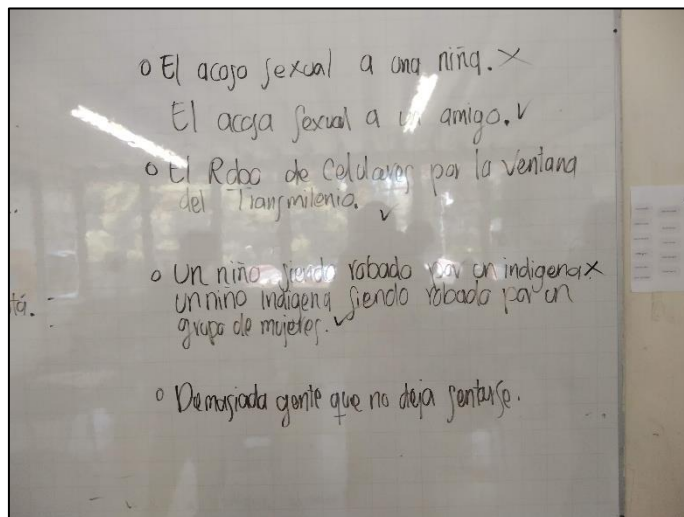 o El acoso sexual a una niña. X
El acoso sexual a un amigo. ✓
o El Robo de Celulares por la ventana
del Transmilenio. ✓
o Un niño siendo robado por un indigena X
un niño indigena siendo robado por un
grupo de mujeres. ✓
tá.
o Demasiada gente que no deja sentarse.